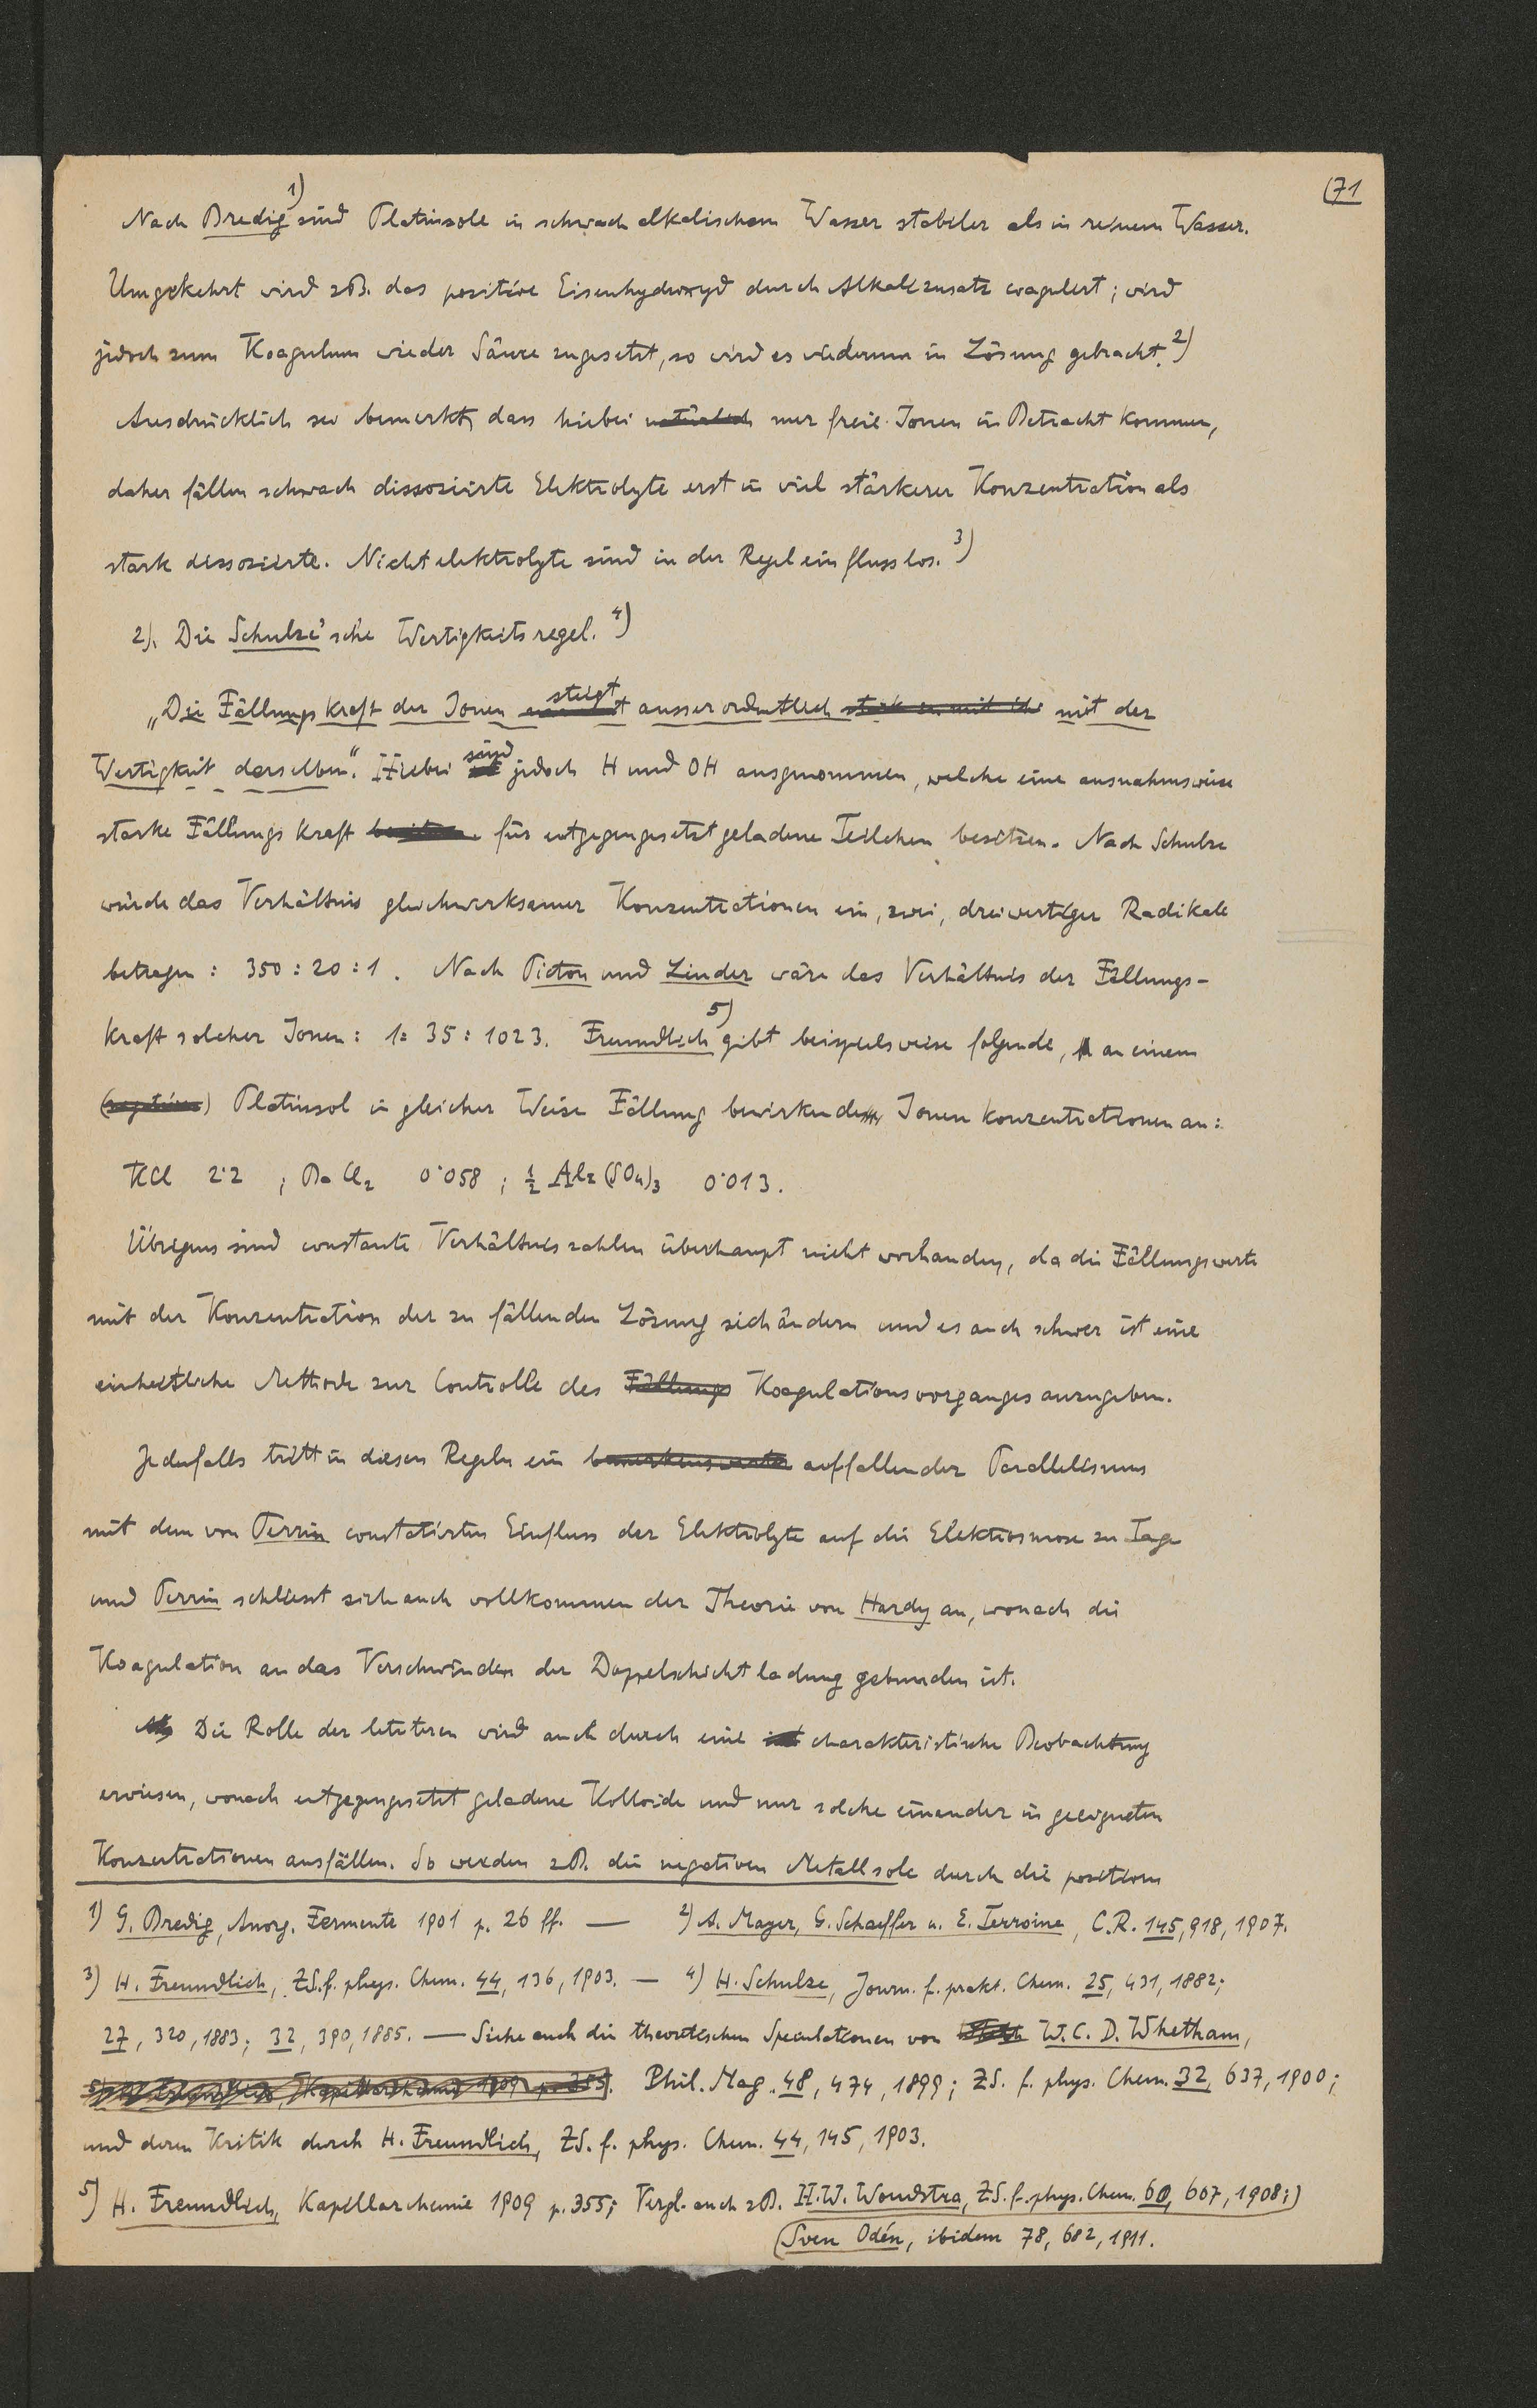 (71
Nach Bredig 1) sind Platinsole in schwach alkalischem Wasser stabiler als in reinem Wasser.
Umgekehrt wird zB. das positive Eisenhydroxyd durch Alkalizusatz coaguliert; wird
jedoch zum Koagulum wieder Säure zugesetzt, so wird es wiederum in Lösung gebracht. 2)
Ausdrücklich sei bemerkt, dass hiebei natürlich nur freie Ionen in Betracht kommen,
daher fällen schwach dissoziierte Elektrolyte erst in viel stärkerer Konzentration als
stark dissoziierte. Nichtelektrolyte sind in der Regel einflusslos. 3)
2). Die Schulze'sche Wertigkeitsregel. 4)
„Die Fällungskraft der Ionen steigt ausserordentlich mit der
Wertigkeit derselben“. Hiebei sind jedoch H und OH ausgenommen, welche eine ausnahmsweise
starke Fällungskraft für entgegengesetzt geladene Teilchen besitzen. Nach Schulze
würde das Verhältnis gleichwirksamer Konzentrationen ein, zwei, dreiwertiger Radikale
betragen: 350 : 20 : 1. Nach Picton und Linder wäre das Verhältnis der Fällungs-
kraft solcher Ionen: 1 : 35 : 1023. Freundlich 5) gibt beispielsweise folgende, an einem
(negativen) Platinsol in gleicher Weise Fällung bewirkende Ionenkonzentrationen an:
KCl 2·2 ; BaCl2 0·058 ; ½ Al2(SO4)3 0·013.
Übrigens sind constante Verhältniszahlen überhaupt nicht vorhanden, da die Fällungswerte
mit der Konzentration der zu fällenden Lösung sich ändern und es auch schwer ist eine
einheitliche Methode zur Controlle des Fällungs Koagulationsvorganges anzugeben.
Jedenfalls tritt in diesen Regeln ein bemerkenswerter auffallender Parallelismus
mit dem von Perrin constatirten Einfluss der Elektrolyte auf die Elektrosmose zu Tage
und Perrin schliesst sich auch vollkommen der Theorie von Hardy an, wonach die
Koagulation an das Verschwinden der Doppelschichtladung gebunden ist.
Die Rolle der letzteren wird auch durch eine charakteristische Beobachtung
erwiesen, wonach entgegengesetzt geladene Kolloide und nur solche einander in geeigneten
Konzentrationen ausfällen. So werden zB. die negativen Metallsole durch die positiven
1) G. Bredig, Anorg. Fermente 1901 p. 26 ff. — 2) A. Mayer, G. Schaeffer u. E. Terroine, C.R. 145, 918, 1907.
3) H. Freundlich, ZS. f. phys. Chem. 44, 136, 1903. — 4) H. Schulze, Journ. f. prakt. Chem. 25, 431, 1882;
27, 320, 1883; 32, 390, 1885. — Siehe auch die theoretischen Speculationen von W. C. D. Whetham,
5) H. Freundlich, Kapillarchemie 1909 p. 355. Phil. Mag. 48, 474, 1899; ZS. f. phys. Chem. 32, 637, 1900;
und deren Kritik durch H. Freundlich, ZS. f. phys. Chem. 44, 145, 1903.
5) H. Freundlich, Kapillarchemie 1909 p. 355; Vergl. auch zB. H. W. Woudstra, ZS. f. phys. Chem. 60, 607, 1908;)
(Sven Odén, ibidem 78, 682, 1911.